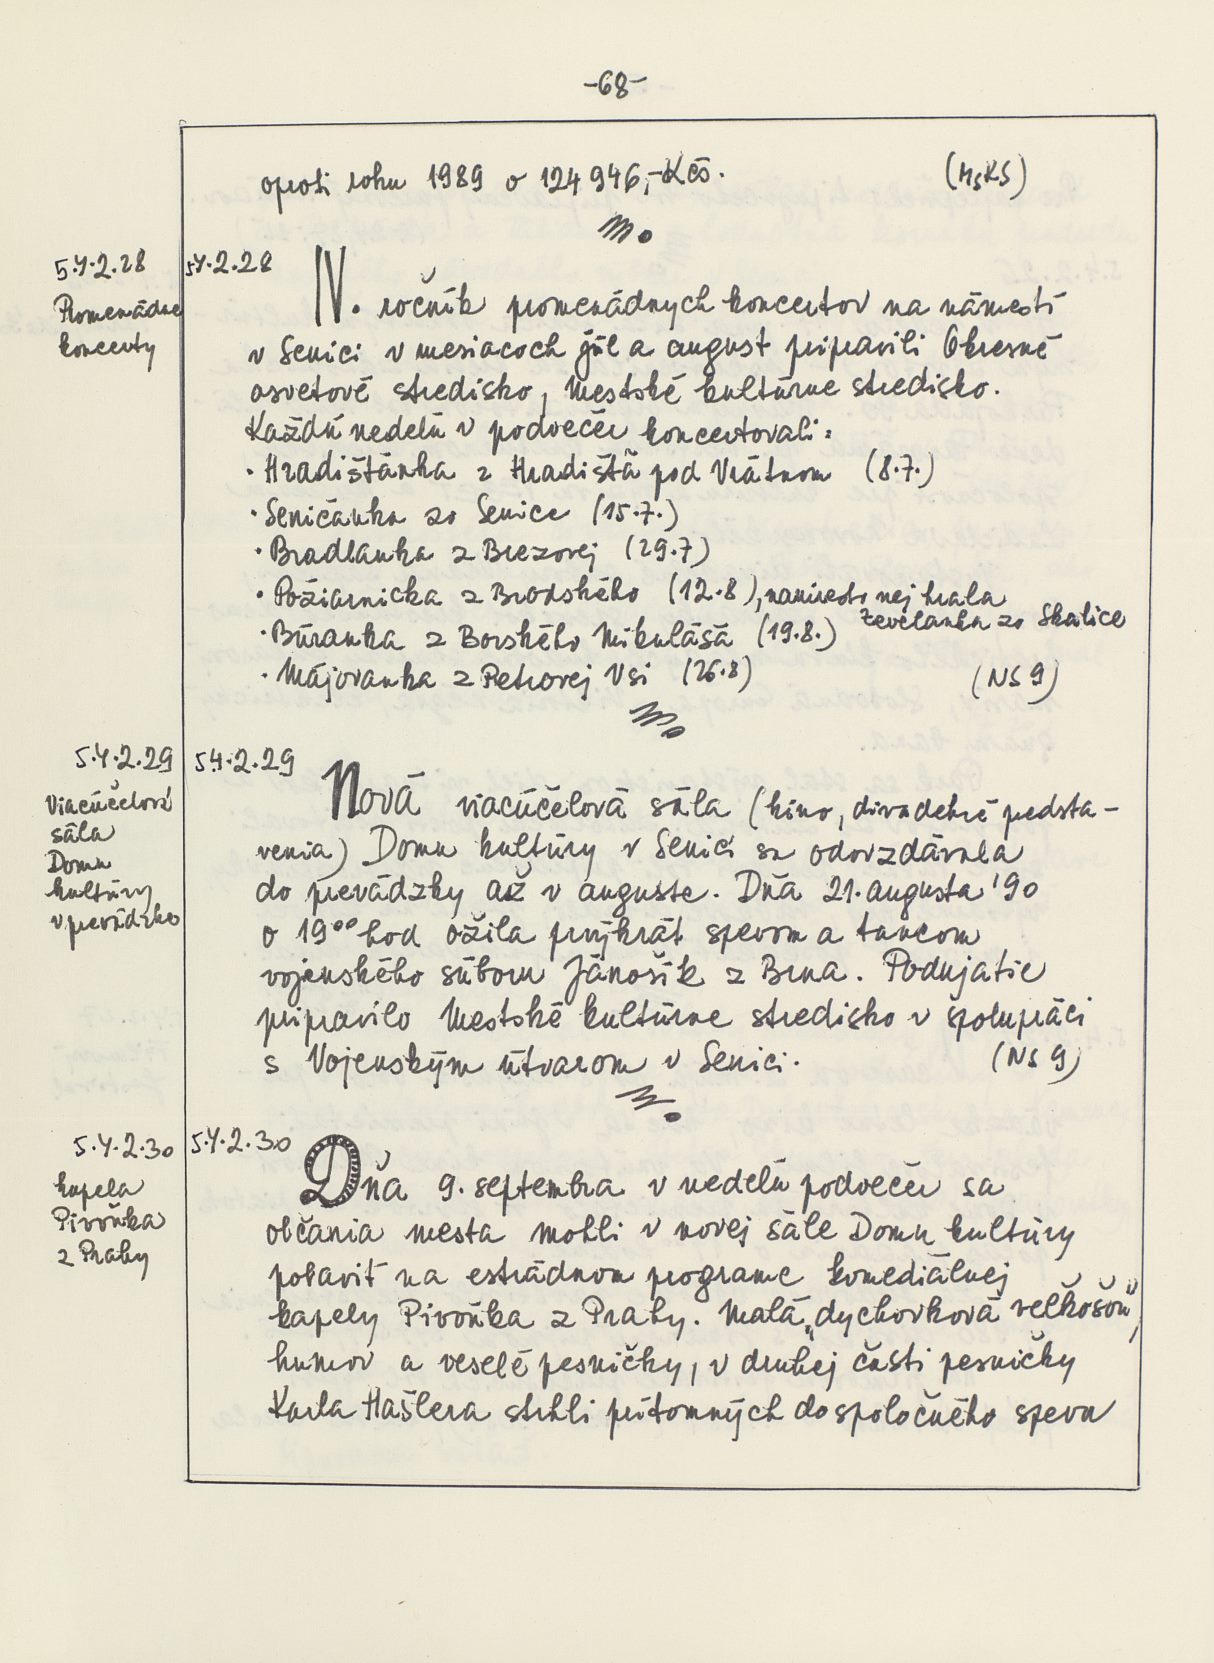 -68-
oproti roku 1989 o 124 946,-Kčs. (MsKS)
5.4.2.28
Promenádne
koncerty
5.4.2.28
IV. ročník promenádnych koncertov na námestí
v Senici v mesiacoch júl a august pripravili Okresné
osvetové stredisko, Mestské kultúrne stredisko.
Každú nedeľu v podvečer koncertovali:
· Hradišťánka z Hradišťa pod Vrátnom (8.7.)
· Seničánka zo Senice (15.7.)
· Bradlanka z Brezovej (29.7)
· Požiarnicka z Brodského (12.8), namiesto nej hrala
Ževelanka zo Skalice
· Búranka z Borského Mikuláša (19.8.)
· Májovanka z Petrovej Vsi (26.8) (NS 9)
5.4.2.29
Viacúčelová
sála
Domu
kultúry
v prevádzke
5.4.2.29
Nová viacúčelová sála (kino, divadelné predsta-
venia) Domu kultúry v Senici sa odovzdávala
do prevádzky až v auguste. Dňa 21. augusta '90
o 19⁰⁰ hod ožila prvýkrát spevom a tancom
vojenského súboru Jánošík z Brna. Podujatie
pripravilo Mestské kultúrne stredisko v spolupráci
s Vojenským útvarom v Senici. (NS 9)
5.4.2.30
kapela
Pivoňka
z Prahy
5.4.2.30
Dňa 9. septembra v nedeľu podvečer sa
občania mesta mohli v novej sále Domu kultúry
pobaviť na estrádnom programe komediálnej
kapely Pivoňka z Prahy. Malá „dychovková veľkošou",
humor a veselé pesničky, v druhej časti pesničky
Karla Hašlera strhli prítomných do spoločného spevu